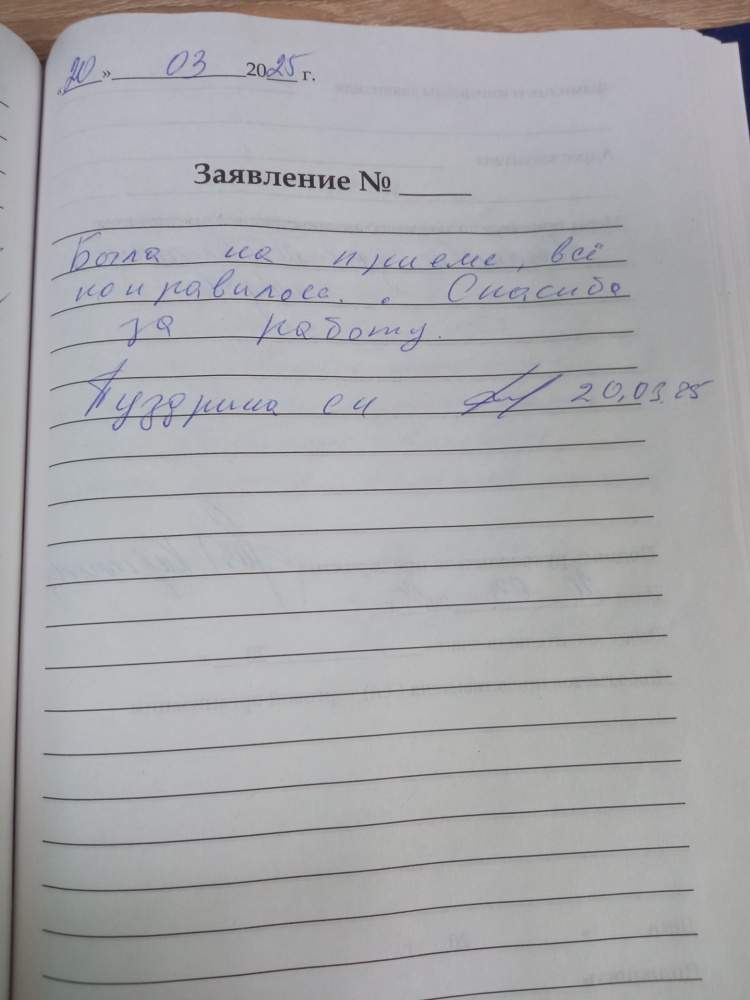 «20» 03 2025 г.
Заявление № ____
Была на приеме, всё
понравилось. Спасибо
за работу.
Пуздрина 20.03.25